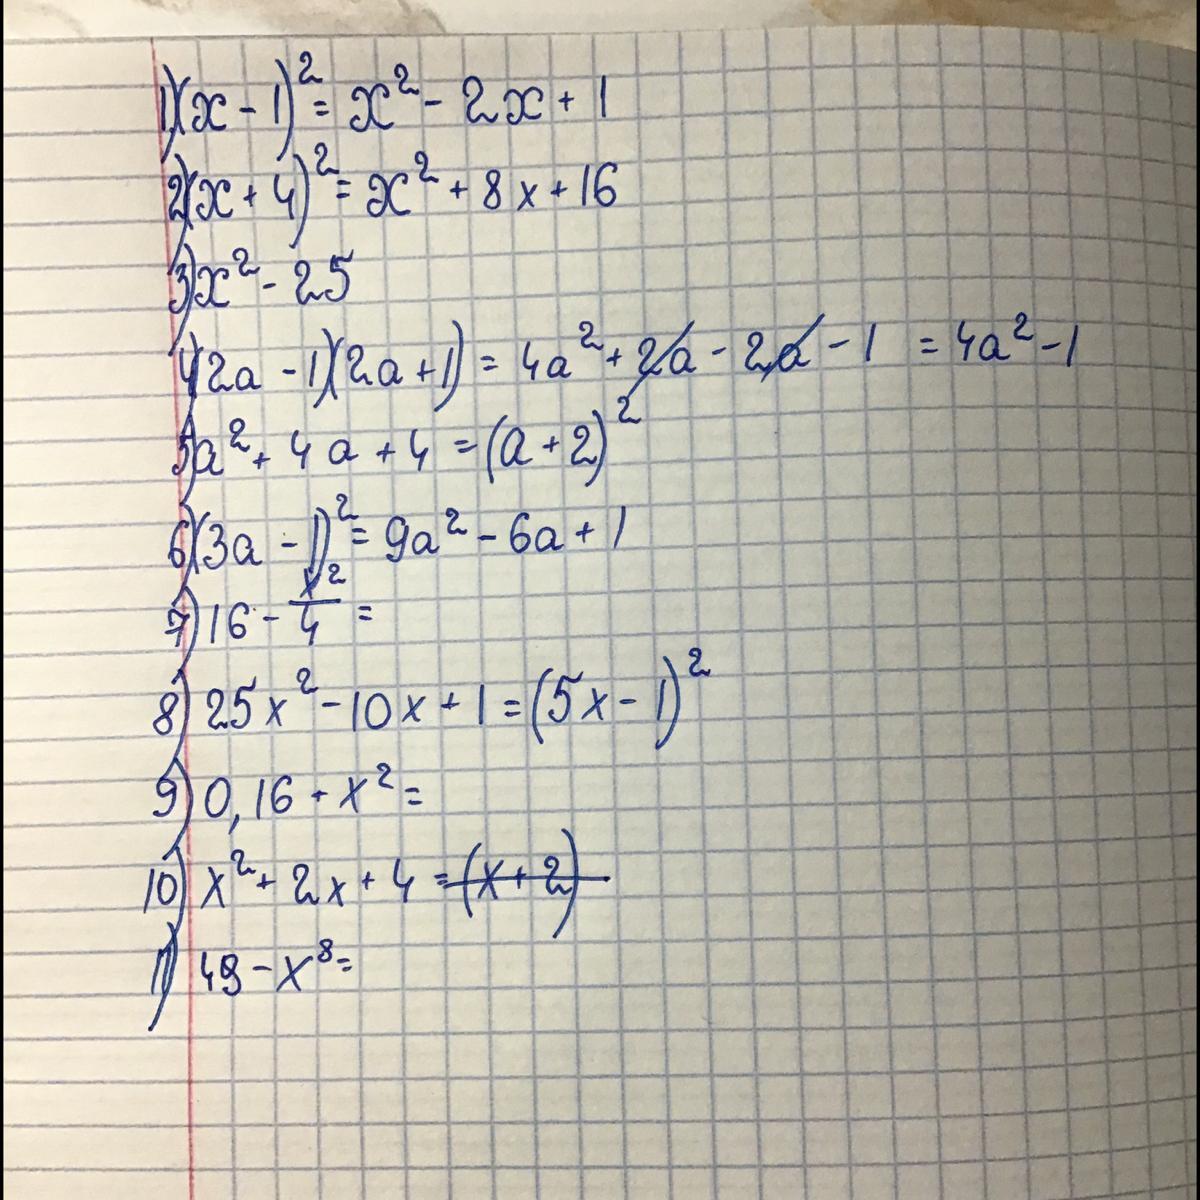 1) (x - 1)² = x² - 2x + 1
2) (x + 4)² = x² + 8x + 16
3) x² - 25
4) (2a - 1)(2a + 1) = 4a² + 2a - 2a - 1 = 4a² - 1
5) a² + 4a + 4 = (a + 2)²
6) (3a - 1)² = 9a² - 6a + 1
7) 16 - x²/4 =
8) 25x² - 10x + 1 = (5x - 1)²
9) 0,16 - x² =
10) x² + 2x + 4 = (x + 2)
11) 49 - x⁸ =